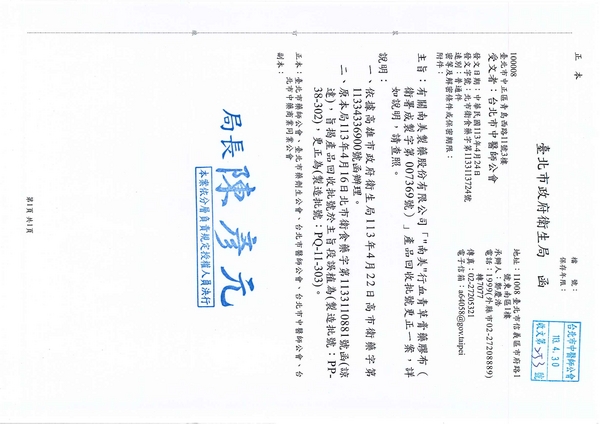 正本
檔 號：
保存年限：
臺北市政府衛生局 函
台北市中醫師公會
113.4.30
收文第253號
100008
臺北市中正區青島西路11號3樓
受文者：台北市中醫師公會
地址：11008臺北市信義區市府路1號東南區1樓
電話：1999(外縣市02-27208889)轉7077
傳真：02-27205321
電子信箱：a64058@gov.taipei
發文日期：中華民國113年4月24日
發文字號：北市衛食藥字第1133113724號
速別：普通件
密等及解密條件或保密期限：
附件：
主旨：有關南美製藥股份有限公司「"南美"行血青草膏藥膠布（
衛署成製字第007369號）」產品回收批號更正一案，詳
如說明，請查照。
說明：
一、依據高雄市政府衛生局113年4月22日高市衛藥字第
11334336900號函辦理。
二、原本局113年4月16日北市衛食藥字第1133110881號函(諒
達)，旨揭產品回收批號於主旨段誤植為(製造批號：PP-
38-302)，更正為(製造批號：PQ-11-303)。
正本：臺北市藥師公會、臺北市藥劑生公會、台北市醫師公會、台北市中醫師公會、台
北市中藥商業同業公會
副本：
局長 陳彥元
本案依分層負責規定授權人員決行
第1頁 共1頁